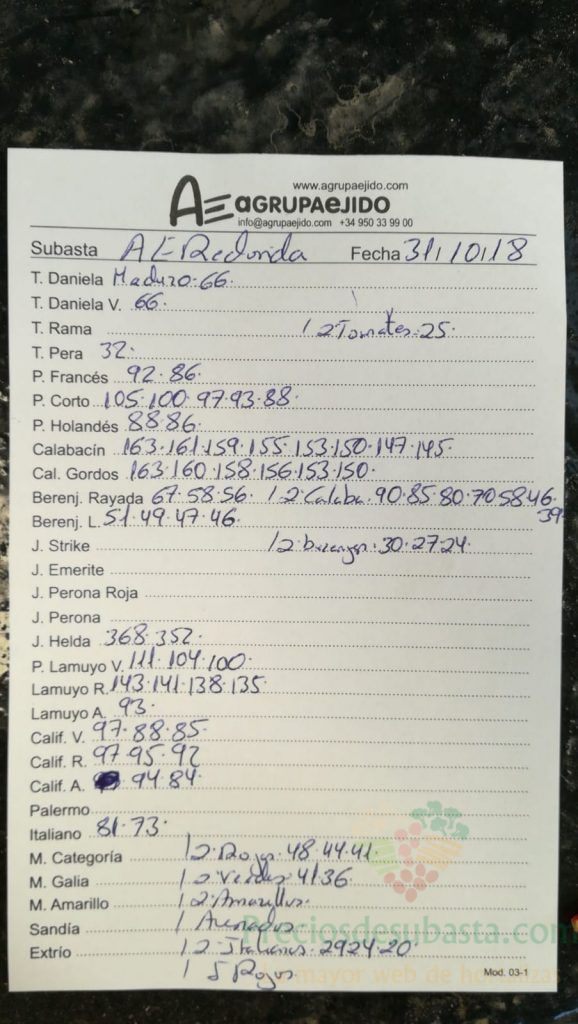 www.agrupaejido.com
AE AGRUPAEJIDO
info@agrupaejido.com +34 950 33 99 00
Subasta AE Redonda Fecha 31/10/18
T. Daniela Maduro 66.
T. Daniela V. 66.
T. Rama / 2 Tomates 25.
T. Pera 32.
P. Francés 92.86.
P. Corto 105.100.97.93.88.
P. Holandés 88.86.
Calabacín 163.161.159.155.153.150.147.145.
Cal. Gordos 163.160.158.156.153.150.
Berenj. Rayada 67.58.56. / 2 Calaba. 90.85.80.70.58.46.
39
Berenj. L. 51.49.47.46.
J. Strike / 2 berenjen. 30.27.24
J. Emerite
J. Perona Roja
J. Perona
J. Helda 368.352.
P. Lamuyo V. 111.104.100.
Lamuyo R. 143.141.138.135
Lamuyo A. 93.
Calif. V. 97.88.85.
Calif. R. 97.95.92
Calif. A. 94.84.
Palermo
Italiano 81.73.
M. Categoría / 2 Rojos 48.44.41.
M. Galia / 2 Verdes 41 36.
M. Amarillo / 2 Amarillos
Sandía /
Preciosdesubasta.com
Extrío / 2 Italianos 29 24.20
/ 5 Rojos
mayor web de hortalizas
Mod. 03-1